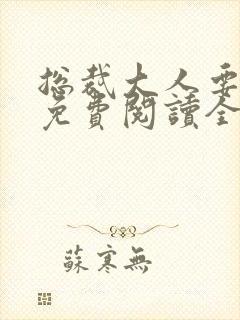 總裁大人要
免費閱讀全
蘇寒無